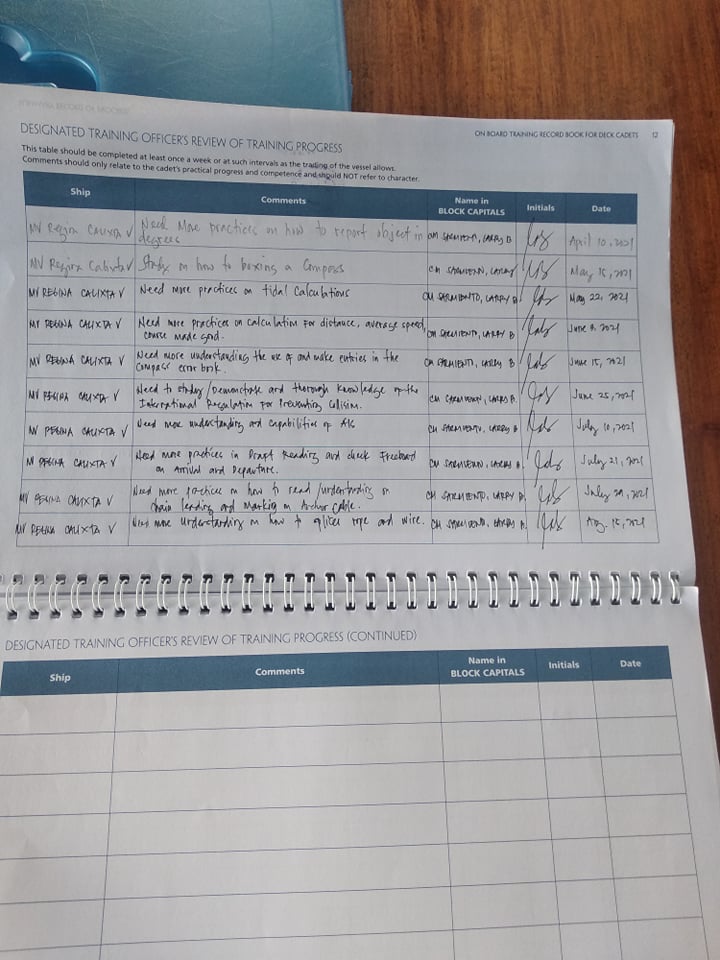 DESIGNATED TRAINING OFFICER'S REVIEW OF TRAINING PROGRESS
ON BOARD TRAINING RECORD BOOK FOR DECK CADETS 12
This table should be completed at least once a week or at such intervals as the trading of the vessel allows.
Comments should only relate to the cadet's practical progress and competence and should NOT refer to character.
Ship Comments Name in BLOCK CAPITALS Initials Date
MV Regina CALIXTA V Need More practices on how to report object in
degrees CM SARMIENTO, LARRY B. April 10, 2021
MV Regina Calixta V Study on how to boxing a Compass CM SARMIENTO, LARRY May 15, 2021
MV REGINA CALIXTA V Need more practices on tidal Calculations CM SARMIENTO, LARRY B. May 22, 2021
MV REGINA CALIXTA V Need more practices on calculation for distance, average speed,
course made good. CM SARMIENTO, LARRY B June 2021
MV REGINA CALIXTA V Need more understanding the use of and make entries in the
Compass error book. CM SARMIENTO, LARRY B June 15, 2021
MV REGINA CALIXTA V Need to study/Demonstrate and thorough knowledge of the
International Regulation for Preventing Collision. CM SARMIENTO, LARRY B. June 25, 2021
MV REGINA CALIXTA V Need more understanding and capabilities of AIS CM SARMIENTO, LARRY B July 10, 2021
MV REGINA CALIXTA V Need more practices in Draft Reading and check Freeboard
on Arrival and Departure. CM SARMIENTO, LARRY B July 21, 2021
MV REGINA CALIXTA V Need more practices on how to read/understanding on
chain leading and Marking on Anchor Cable. CM SARMIENTO, LARRY B. July 2021
MV REGINA CALIXTA V Need more understanding on how to splices rope and wire. CM SARMIENTO, LARRY B. Aug. 15, 2021
DESIGNATED TRAINING OFFICER'S REVIEW OF TRAINING PROGRESS (CONTINUED)
Ship Comments Name in BLOCK CAPITALS Initials Date